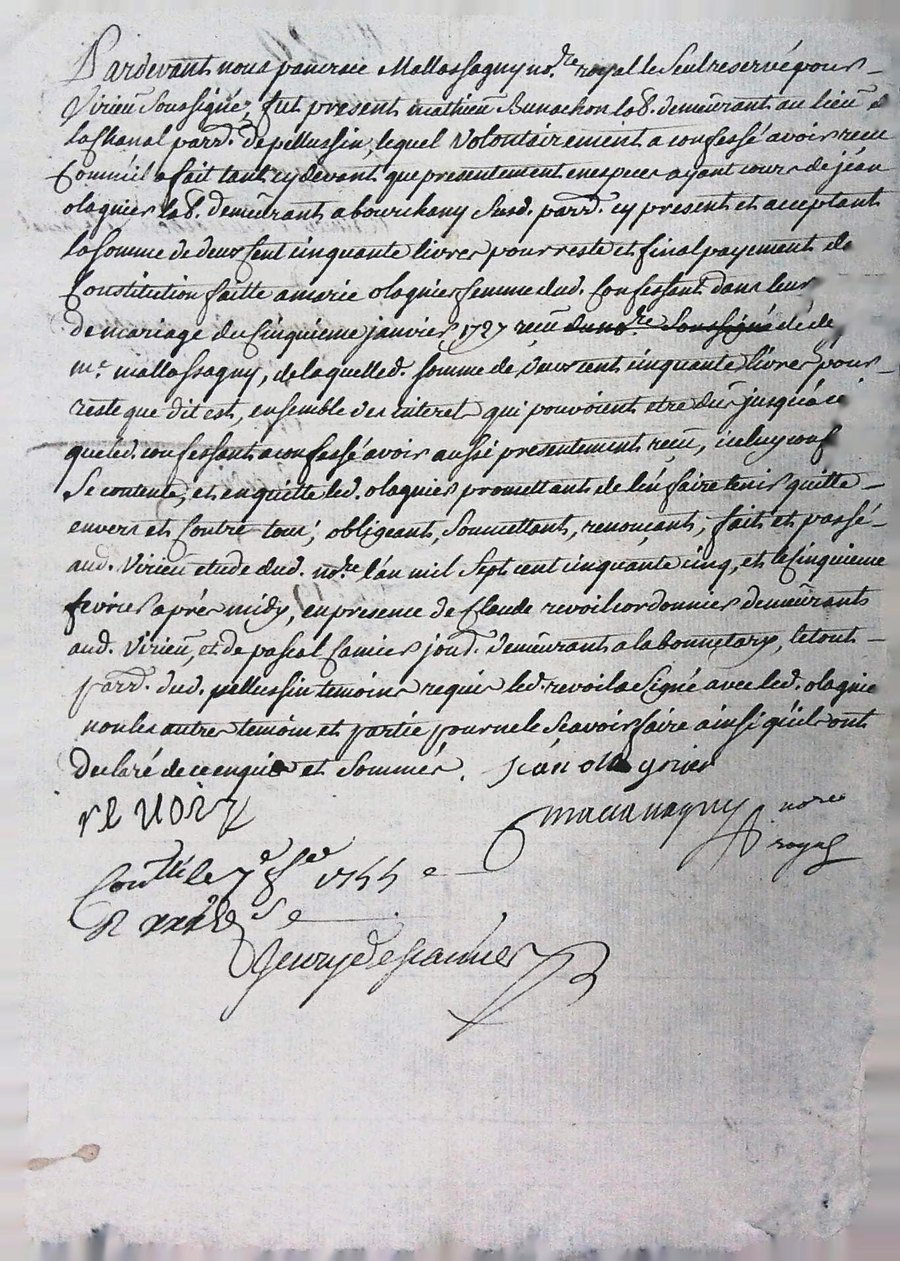 Pardevant nous pancrace Mallassagny no.re royal le seul reservé pour
Virieu soussigné, fut present mathieu Bunachon lab.r demeurant au lieu de
la Chanal parr.e de pellussin, lequel volontairement a confessé avoir receu
Comm'il a fait tant cy devant que presentement en especes ayant cours de jean
olagnier lab.r demeurant a bourchany susd. parr.e cy present et acceptant
la somme de deux cent cinquante livres pour reste et final payement de
Constitution faitte a marie olagnier femme dud. Confessant dans leur
de mariage du cinquieme janvier 1727 receu du no.re soussigné dé de
m.e mallassagny, de laquelle d. somme de deux cent cinquante livres pour
reste que dit est, ensemble des interet qui pouvoient etre dus jusqu'a ce
que led. confessant a confessé avoir aussi presentement receu, iceluy conf
se contente, et en quitte led. olagnier promettant de l'en faire tenir quitte
envers et contre tous; obligeant, soumettant, renonçant, fait et passé
aud. Virieu etude dud. no.re l'an mil sept cent cinquante cinq, et le cinquieme
fevrier après midy, en presence de Claude revoil cordonnier demeurant
aud. Virieu, et de pascal Camier jour.r demeurant a la bonnetary, le tout
parr.e dud. pellussin temoins requis led. revoil a signé avec led. olagnie
non les autres temoin et partie pour ne le scavoir faire ainsi qu'ils ont
declaré de ce enquis et sommés. jean olagnier
revoil
mallassagny nore
royal
Conllé le 7e fer 1755
R